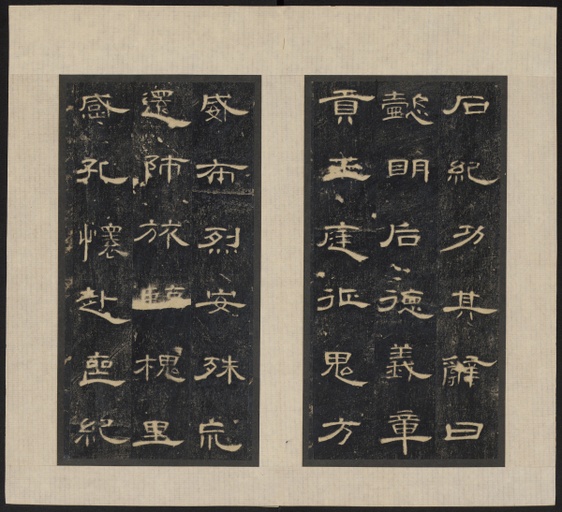 石紀功其辭曰
懿明后德義章
貢王庭征鬼方
威布烈安殊巟
還師旅槐里
感孔懷赴喪紀